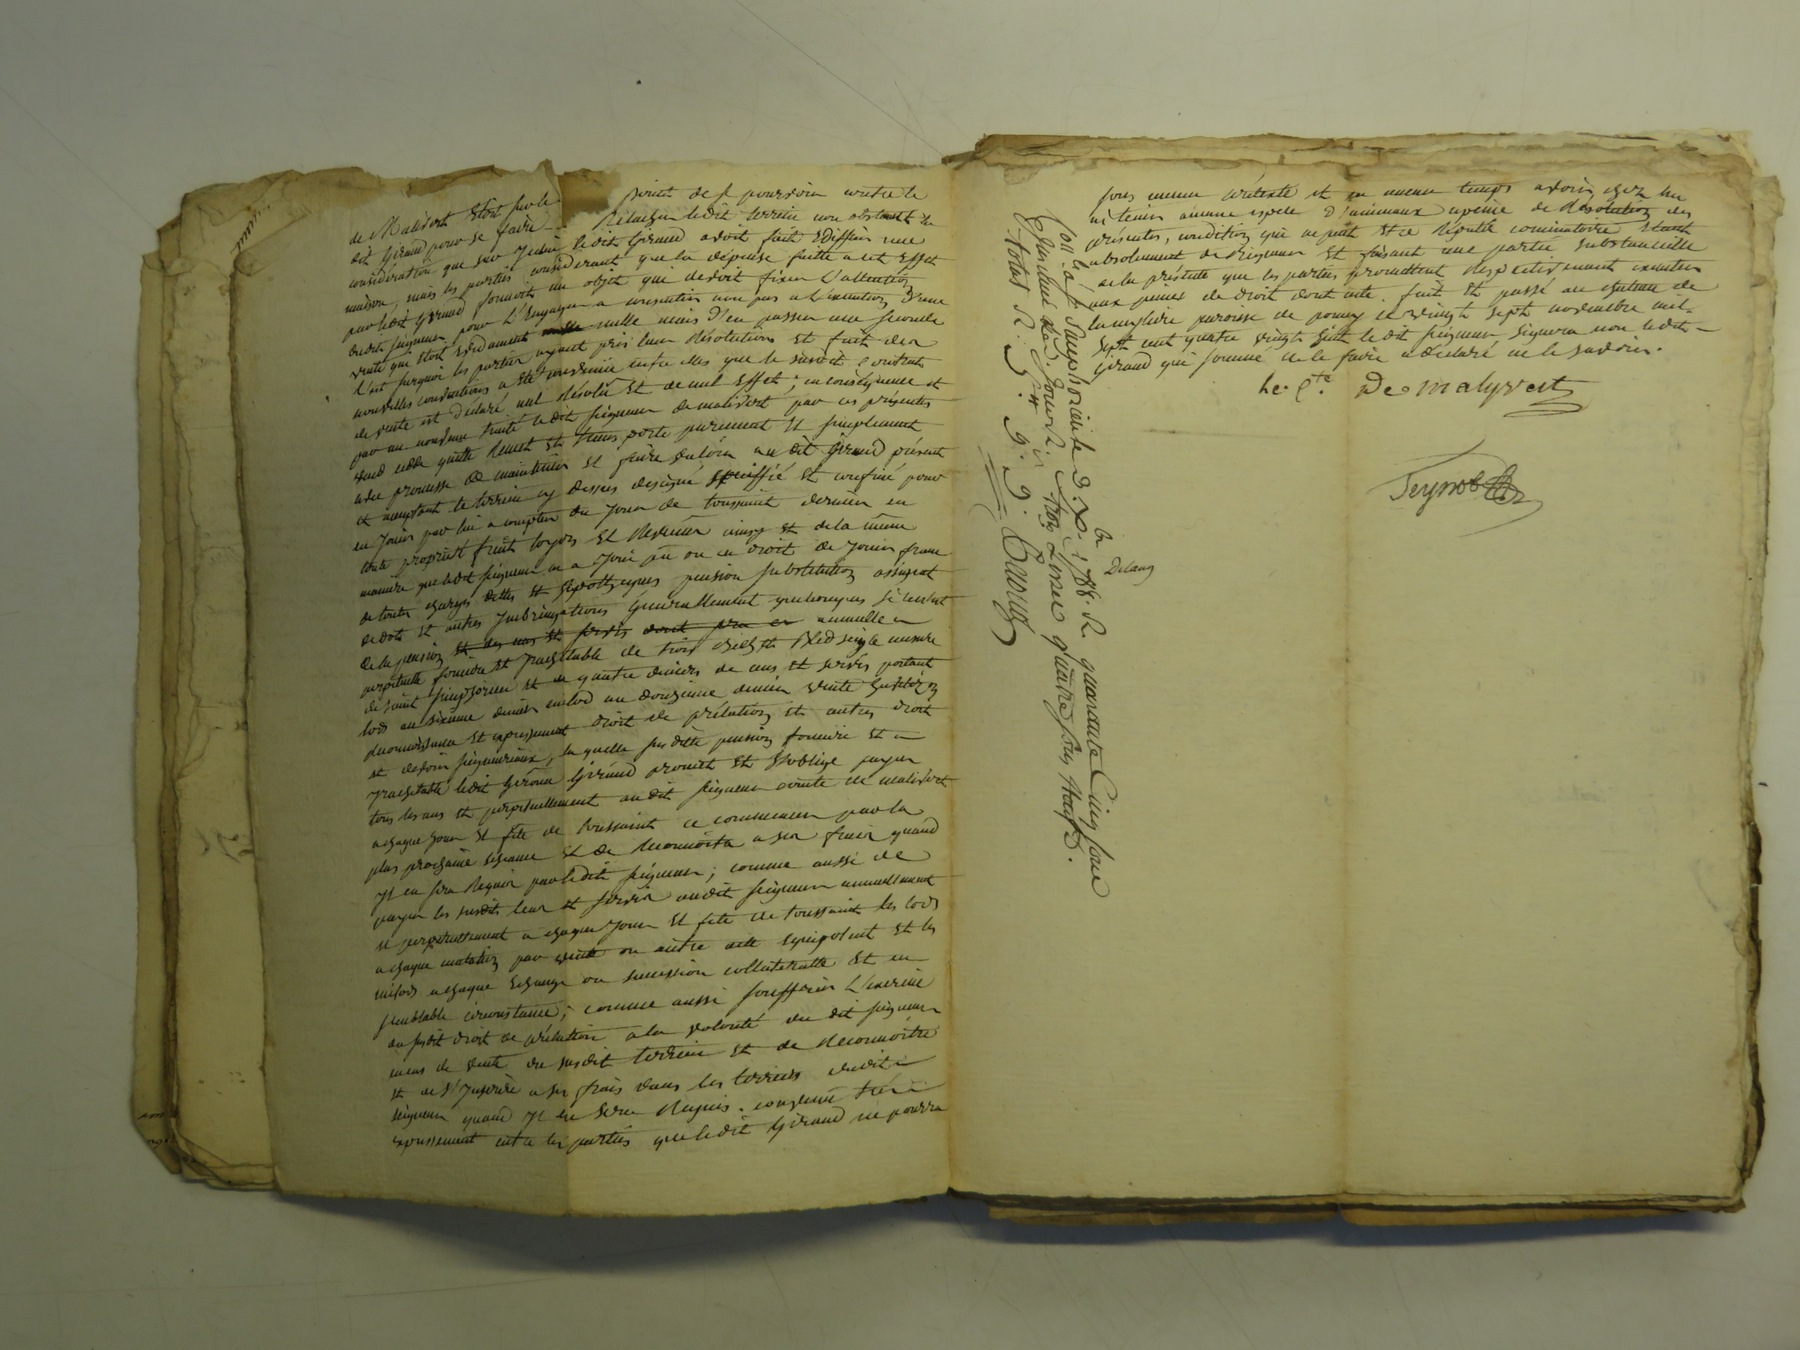 point de se pourvoir contre le
de Malivert etoit sur le
relacher ledit terrein non obstant la
dit Giraud pour se faire
consideration que sur icelui ledit Giraud avoit fait ediffier une
maison, mais les parties considerant que la depense faitte a cet effet
par ledit Giraud formoit un objet qui devoit fixer l'attention
dudit seigneur pour l'engager a consentir non pas a l'execution d'une
vente qui etoit evidament nulle mais d'en passer une seconde
C'est surquoi les parties ayant pris leur résolutions et fait des
nouvelles conventions a été convenu entre elles que le susdit contrat
de vente est declaré nul résolu et de nul effet; en conséquence et
par un nouveau traité ledit seigneur de malivert par ces présentes
vend cede quitte remet et transporte purement et simplement
avec promesse de maintenir et faire valoir au dit Giraud présent
et acceptant le terrein cy dessus designé speciffié et confiné pour
en jouir par lui a compter du jour de toussaint dernier en
toute propriété fruits loyers et revenus ainsy et de la même
maniere que ledit seigneur en a joui pu ou eu droit de jouir franc
de toutes charges dettes et hypotheques pension substitution assignat
de dots et autres imbringations generallement quelconques si ce n'est
de la pension annuelle
perpetuelle fonciere et rachetable de trois bichets bled seigle mesure
de saint simphorien et de quatre deniers de cens et servis portant
lods au sixieme denier milod au douzieme denier vente
reconnoissance et expressement droit de prélation et autres droit
et devoir seigneuriaux, laquelle susditte pension fonciere et
rachetable ledit Gerome Giraud promet et s'oblige payer
tous les ans et perpetuellement audit seigneur comte de malivert
a chaque jour et fête de toussaint a commencer par la
plus prochaine echeance et de reconnoitre a ses frais quand
il en sera requis par ledit seigneur; comme aussi de
payer les susdits cens et servis audit seigneur annuellement
et perpetuellement a chaque jour et fête de toussaint les lods
a chaque mutation par vente ou autre acte equipolent et les
milods a chaque echange ou succession collateralle et en
semblable circonstance; comme aussi souffrir l'exercice
du susdit droit de prélation a la volonté du dit seigneur
en cas de vente du susdit terrein et de reconnoitre
et de s'inscrire a ses frais dans les terriers dudit
seigneur quand il en sera requis. convenu très
expressement entre les parties que ledit Giraud ne pourra
sous aucun prétexte et en aucun temps avoir chez lui
ni tenir aucune espece d'animaux a peine de résolution des
présentes, condition qui ne peut etre réputée cominatoire etant
absolument de rigueur et faisant une partie substancielle
de la présente que les parties promettent respectivement executer
aux peines de droit dont acte. fait et passé au chateau de
paroisse de le vingt sept novembre mil
sept cent quatre vingts sept ledit seigneur signera non ledit
Giraud qui sommé de le faire a déclaré ne le savoir.
Le C.te De malyvert
Con.lé a St Simphorien le 3. Xbre 1788. R. quarante cinq sous
trois livres quatre sous neuf d.
Delay